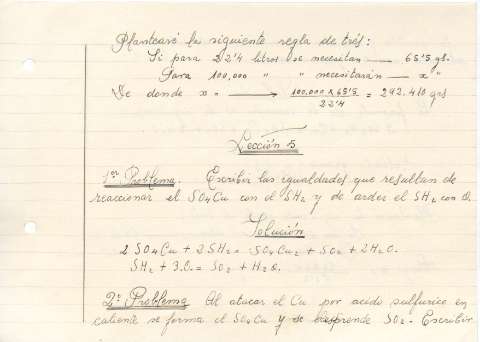 Plantearé la siguiente regla de tres:
Si para 22'4 litros se necesitan — 65'5 gs.
Para 100,000 " " necesitarán — x "
De donde x = ⟶ 100,000 x 65'5 / 22'4 = 292.410 grs
Lección 5
1er Problema. Escribir las igualdades que resultan de
reaccionar el SO4Cu con el SH2 y de arder el SH2 con O.
Solución
2 SO4Cu + 2SH2 = SO4Cu2 + SO2 + 2H2O.
SH2 + 3.O. = SO2 + H2O.
2º Problema Al atacar el Cu por acido sulfurico en
caliente se forma el SO4Cu y se desprende SO2. Escribir